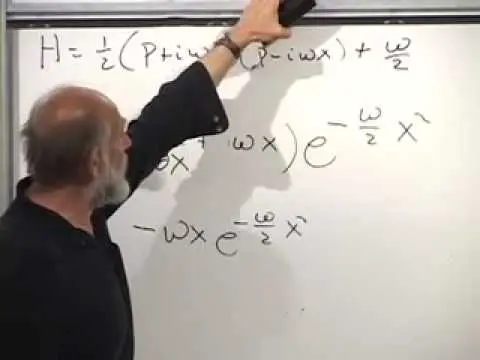 H = ½ (P+iω (P-iωx) + ω/2
∂x + ωx) e^{-ω/2 x²}
-ωx e^{-ω/2 x²}